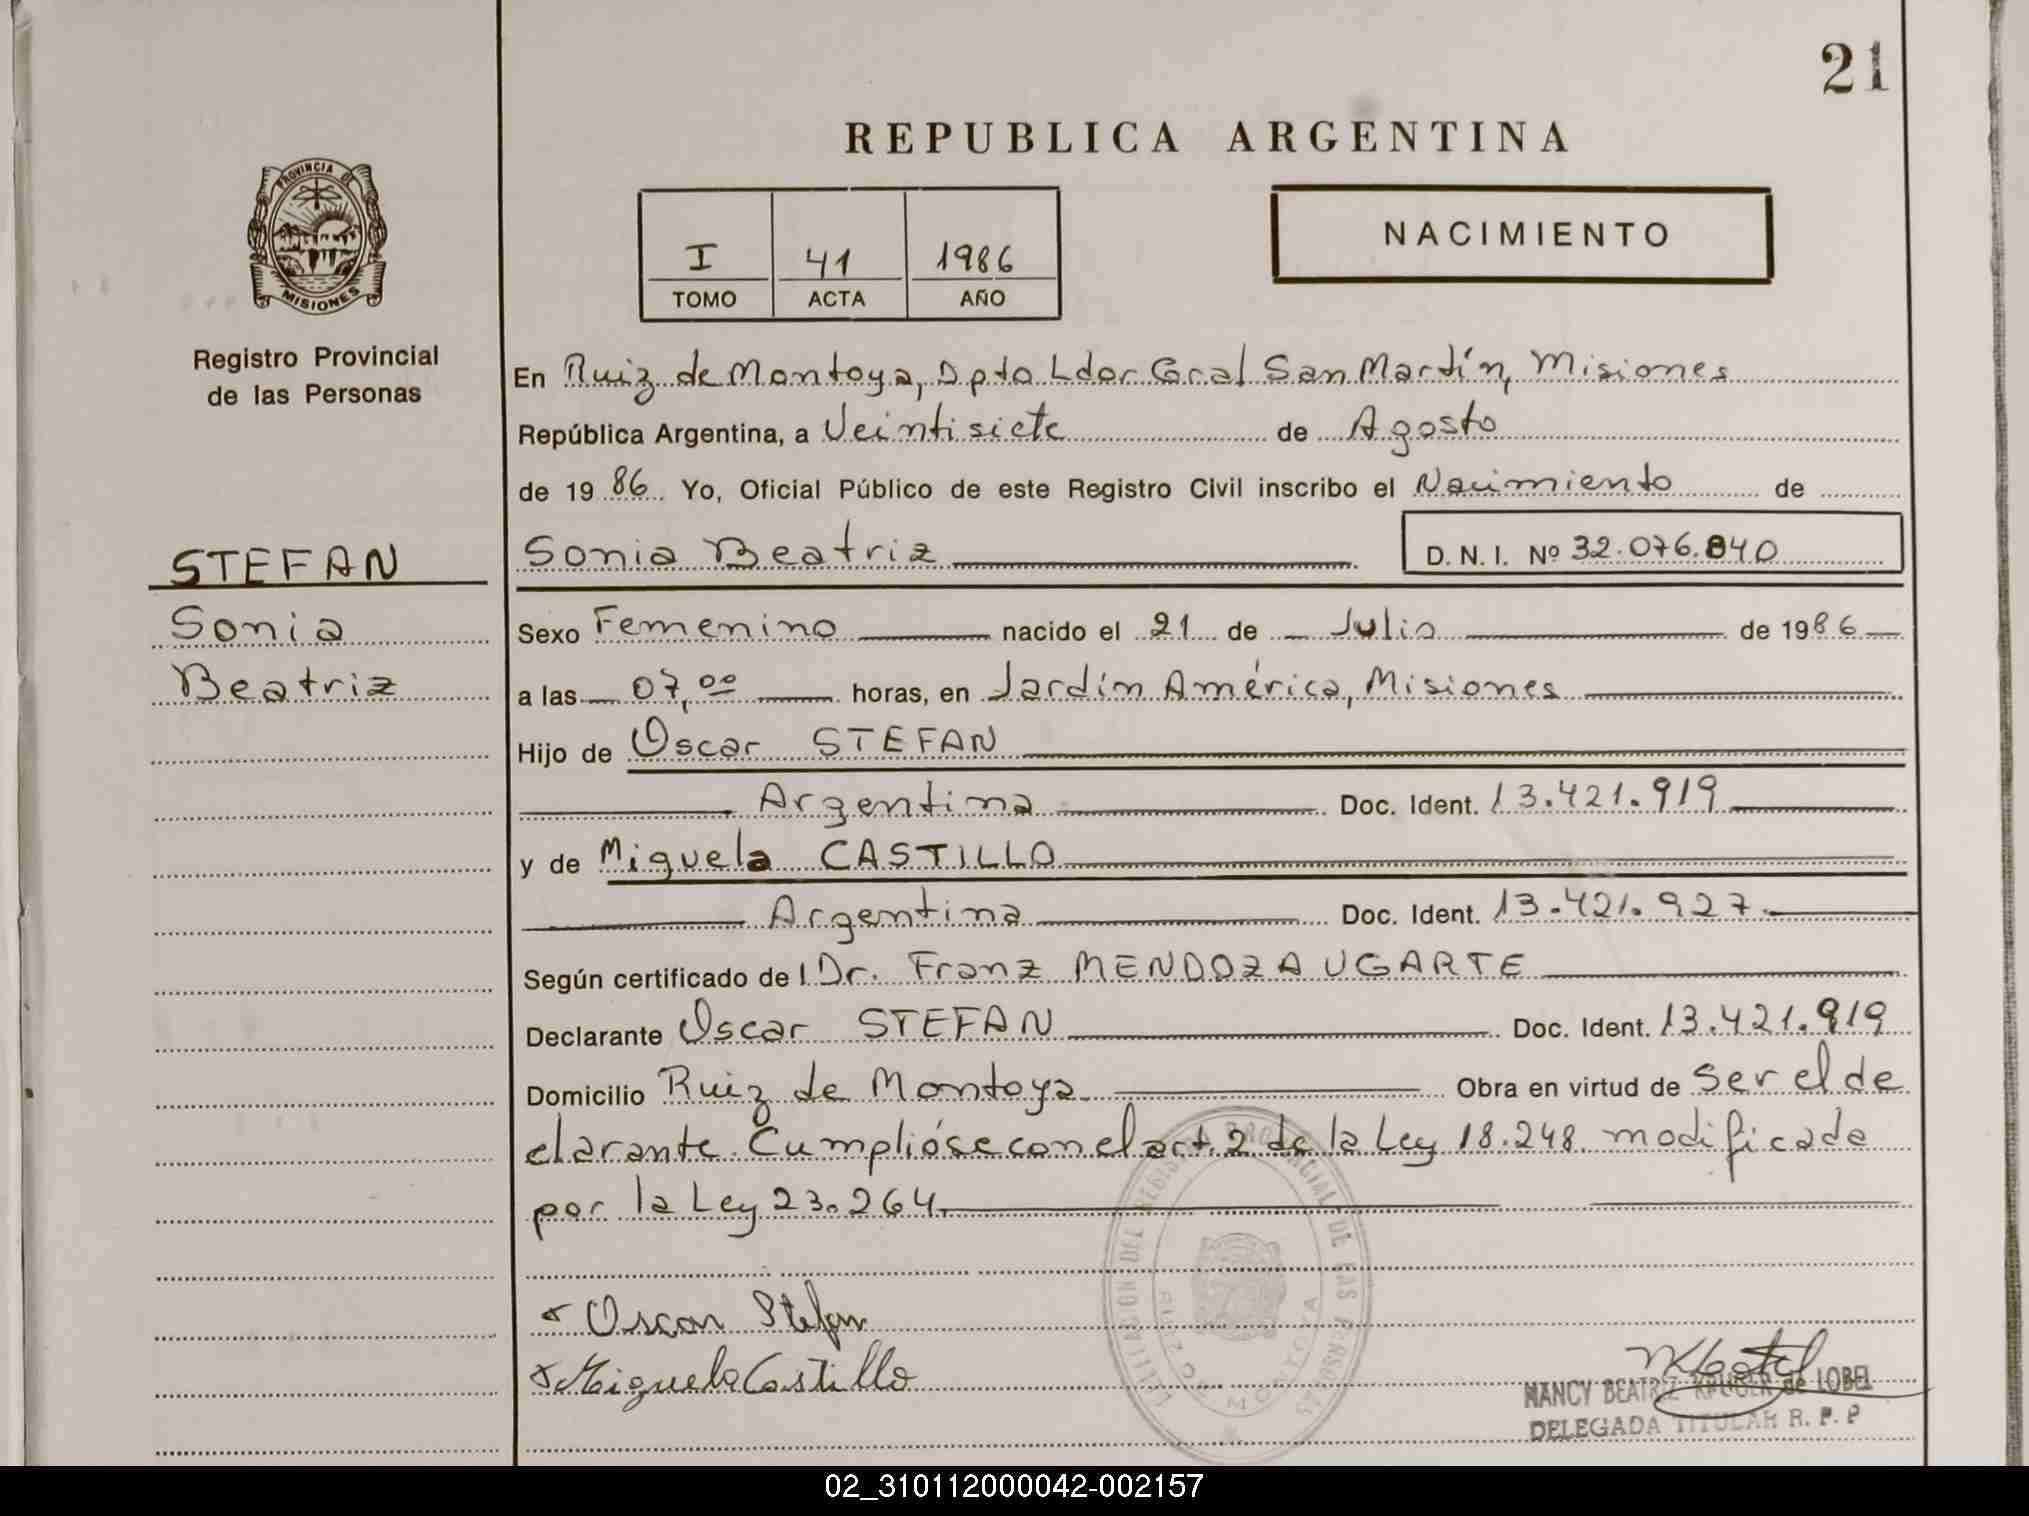 21
REPUBLICA ARGENTINA
PROVINCIA DE
MISIONES
I 41 1986
TOMO ACTA AÑO
NACIMIENTO
Registro Provincial
de las Personas
En Ruiz de Montoya, Dpto Ldor Gral San Martín, Misiones
República Argentina, a Veintisiete de Agosto
de 1986 Yo, Oficial Público de este Registro Civil inscribo el Nacimiento de
STEFAN
Sonia
Beatriz
Sonia Beatriz D. N. I. Nº 32.076.840
Sexo Femenino nacido el 21 de Julio de 1986
a las 07,00 horas, en Jardín América, Misiones
Hijo de Oscar STEFAN
Argentina Doc. Ident. 13.421.919
y de Miguela CASTILLO
Argentina Doc. Ident. 13.421.927
Según certificado de l Dr. Franz MENDOZA UGARTE
Declarante Oscar STEFAN Doc. Ident. 13.421.919
Domicilio Ruiz de Montoya Obra en virtud de ser el de
clarante. Cumplióse con el art. 2 de la Ley 18.248 modificada
por la Ley 23.264
Oscar Stefan
Miguela Castillo
DEL REGISTRO PROVINCIAL DE LAS PERSONAS
RUIZ DE MONTOYA
NANCY BEATRIZ KRUGER de LOBEL
DELEGADA TITULAR R. P. P
02_310112000042-002157